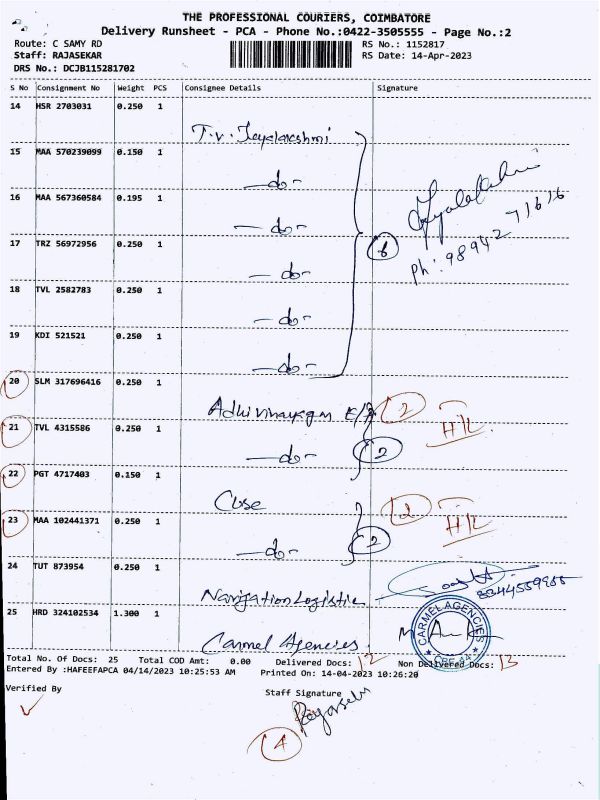 THE PROFESSIONAL COURIERS, COIMBATORE
Delivery Runsheet - PCA - Phone No.:0422-3505555 - Page No.:2
Route: C SAMY RD RS No.: 1152817
Staff: RAJASEKAR RS Date: 14-Apr-2023
DRS No.: DCJB115281702
S No Consignment No Weight PCS Consignee Details Signature
14 HSR 2703031 0.250 1
T.V. Jayalakshmi
15 MAA 570239099 0.150 1
—do—
16 MAA 567360584 0.195 1
—do—
17 TRZ 56972956 0.250 1
6 ph: 98942 71616
—do—
18 TVL 2582783 0.250 1
—do—
19 KDI 521521 0.250 1
—do—
20 SLM 317696416 0.250 1
Adhivinayagan 2
21 TVL 4315586 0.250 1 H/L
—do— 2
22 PGT 4717403 0.150 1
2
23 MAA 102441371 0.250 1 H/L
—do— 2
24 TUT 873954 0.250 1
Navigation Logistic
25 HRD 324102534 1.300 1
CARMEL AGENCIES
Carmel Agencies.
Total No. Of Docs: 25 Total COD Amt: 0.00 Delivered Docs: 12 Non Delivered Docs: 13
Entered By :HAFEEFAPCA 04/14/2023 10:25:53 AM Printed On: 14-04-2023 10:26:20
Verified By Staff Signature
4